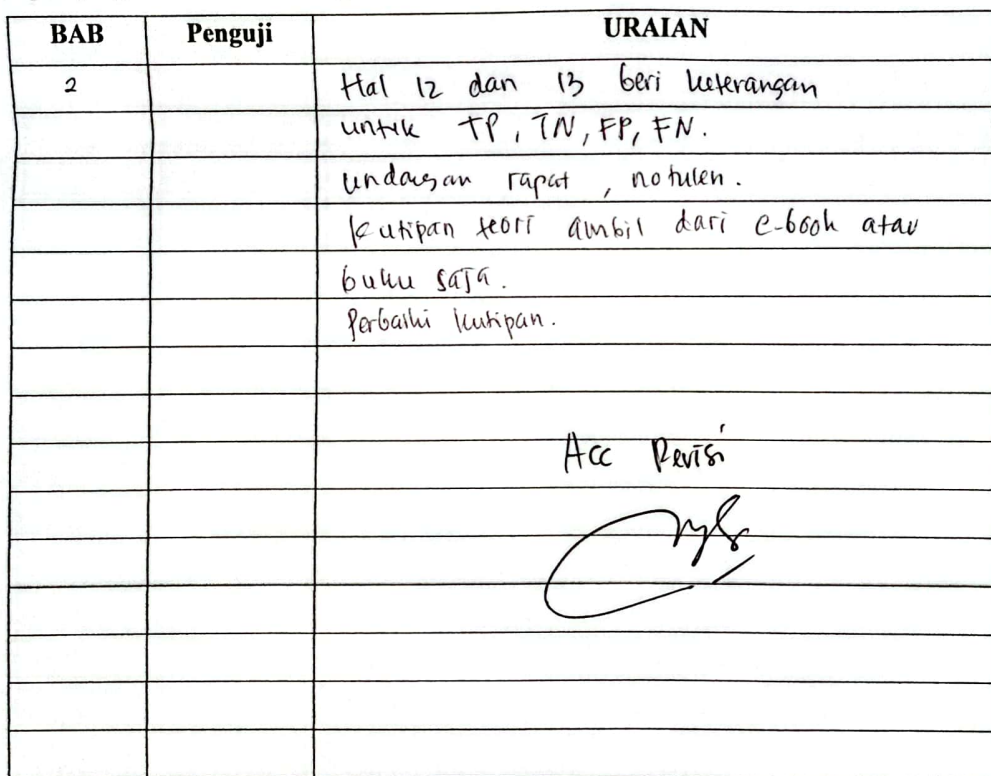 BAB Penguji URAIAN
2 Hal 12 dan 13 beri keterangan
untuk TP, TN, FP, FN.
undangan rapat, notulen.
kutipan teori ambil dari e-book atau
buku saja.
Perbaiki kutipan.
Acc Revisi